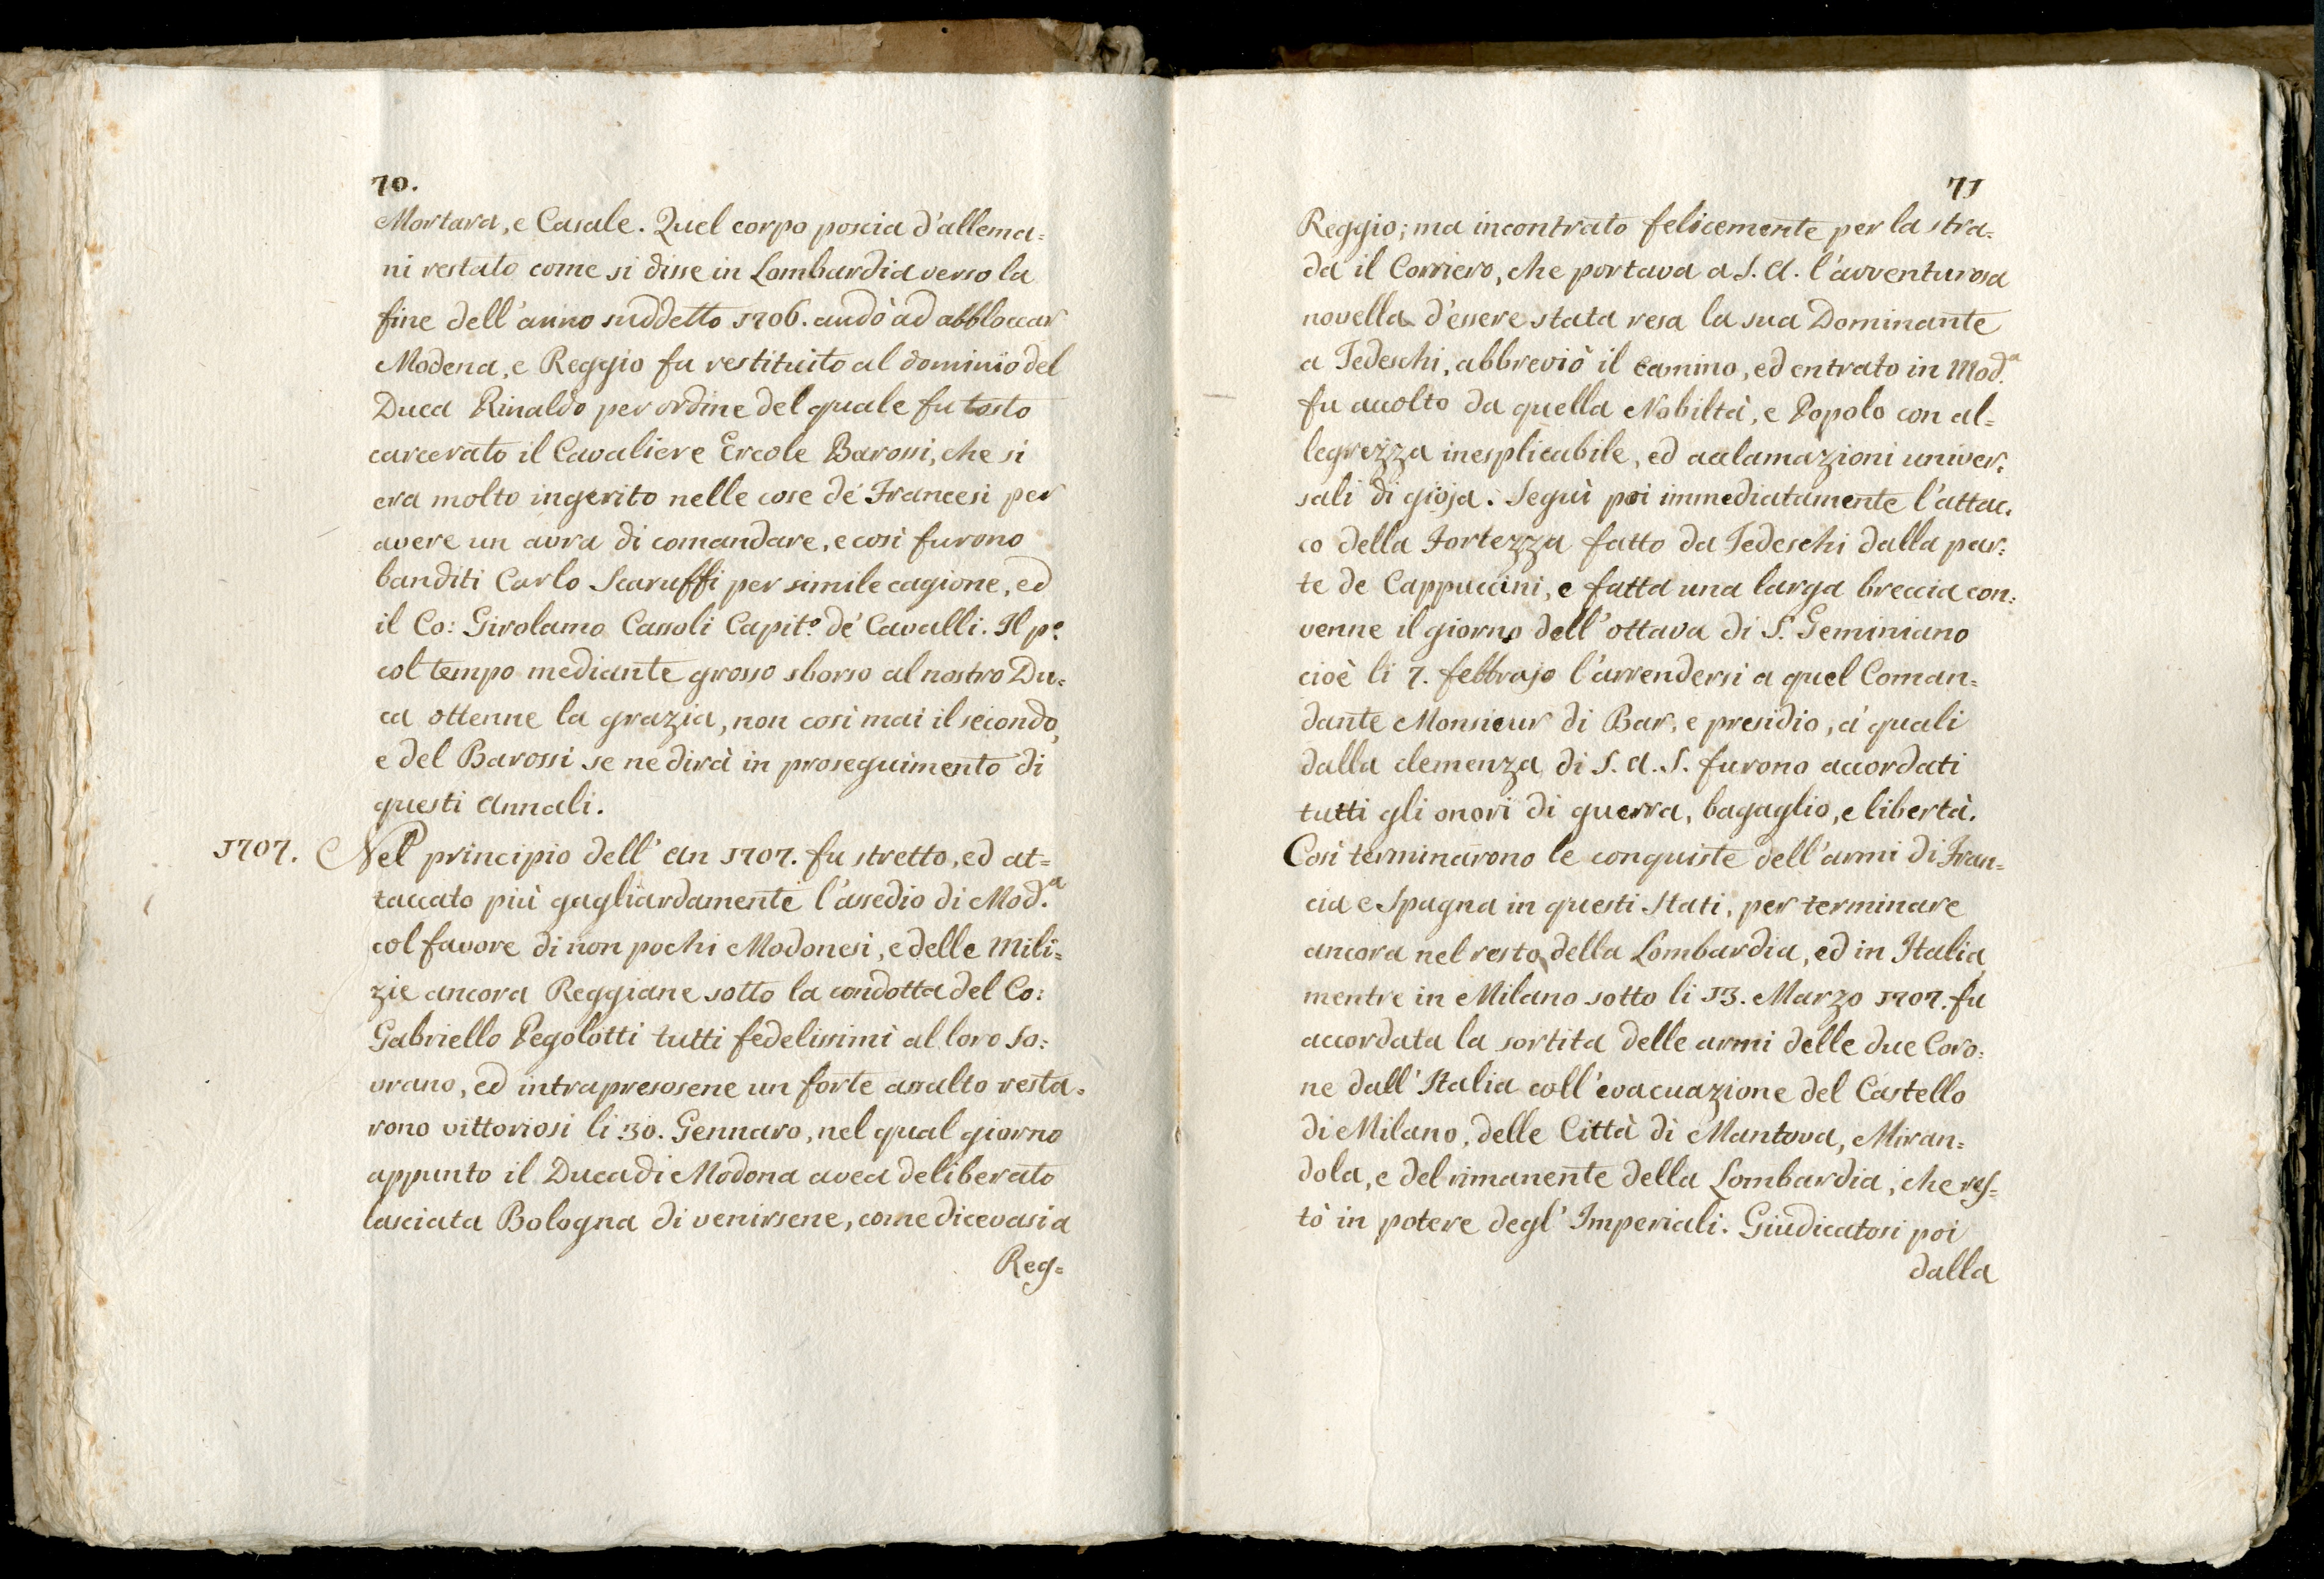 70.
Mortara, e Casale. Quel corpo poscia d'allema=
ni restato come si disse in Lombardia verso la
fine dell'anno suddetto 1706. andò ad abbloccar
Modena, e Reggio fu restituito al dominio del
Duca Rinaldo per ordine del quale fu tosto
carcerato il Cavaliere Ercole Barossi, che si
era molto ingerito nelle cose de' Francesi per
avere un aura di comandare, e così furono
banditi Carlo Scaruffi per simile cagione, ed
il Co: Girolamo Cassoli Capit.º de' Cavalli. Il p.º
col tempo mediante grosso sborso al nostro Du=
ca ottenne la grazia, non così mai il secondo,
e del Barossi se ne dirà in proseguimento di
questi Annali.
1707. Nel principio dell'An 1707. fu stretto, ed at=
taccato più gagliardamente l'assedio di Mod.ª
col favore di non pochi Modonesi, e delle Mili=
zie ancora Reggiane sotto la condotta del Co:
Gabriello Pegolotti tutti fedelissimi al loro So=
vrano, ed intrapresosene un forte assalto resta=
rono vittoriosi li 30. Gennaro, nel qual giorno
appunto il Duca di Modona avea deliberato
lasciata Bologna di venirsene, come dicevasi a
Reg=
71
Reggio; ma incontrato felicemente per la stra=
da il Corriero, che portava a S. A. l'avventurosa
novella d'essere stata resa la sua Dominante
a Tedeschi, abbreviò il camino, ed entrato in Mod.ª
fu accolto da quella Nobiltà, e Popolo con al=
legrezza inesplicabile, ed acclamazioni univer=
sali di gioja. Seguì poi immediatamente l'attac=
co della Fortezza fatto da Tedeschi dalla par=
te de Cappuccini, e fatta una larga breccia con=
venne il giorno dell'ottava di S. Geminiano
cioè li 7. febbrajo l'arrendersi a quel Coman=
dante Monsieur di Bar, e presidio, a' quali
dalla clemenza di S. A. S. furono accordati
tutti gli onori di guerra, bagaglio, e libertà.
Così terminarono le conquiste dell'armi di Fran=
cia e Spagna in questi Stati, per terminare
ancora nel resto della Lombardia, ed in Italia,
mentre in Milano sotto li 13. Marzo 1707. fu
accordata la sortita delle armi delle due Coro=
ne dall'Italia coll'evacuazione del Castello
di Milano, delle Città di Mantova, Miran=
dola, e del rimanente della Lombardia, che res=
tò in potere degl'Imperiali. Giudicatosi poi
dalla